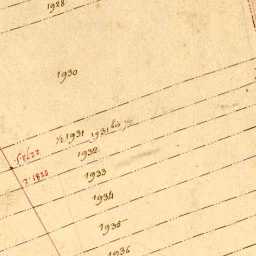 1928
1930
½ 1931 1931 bis ½
1932
1933
1934
1935
1936